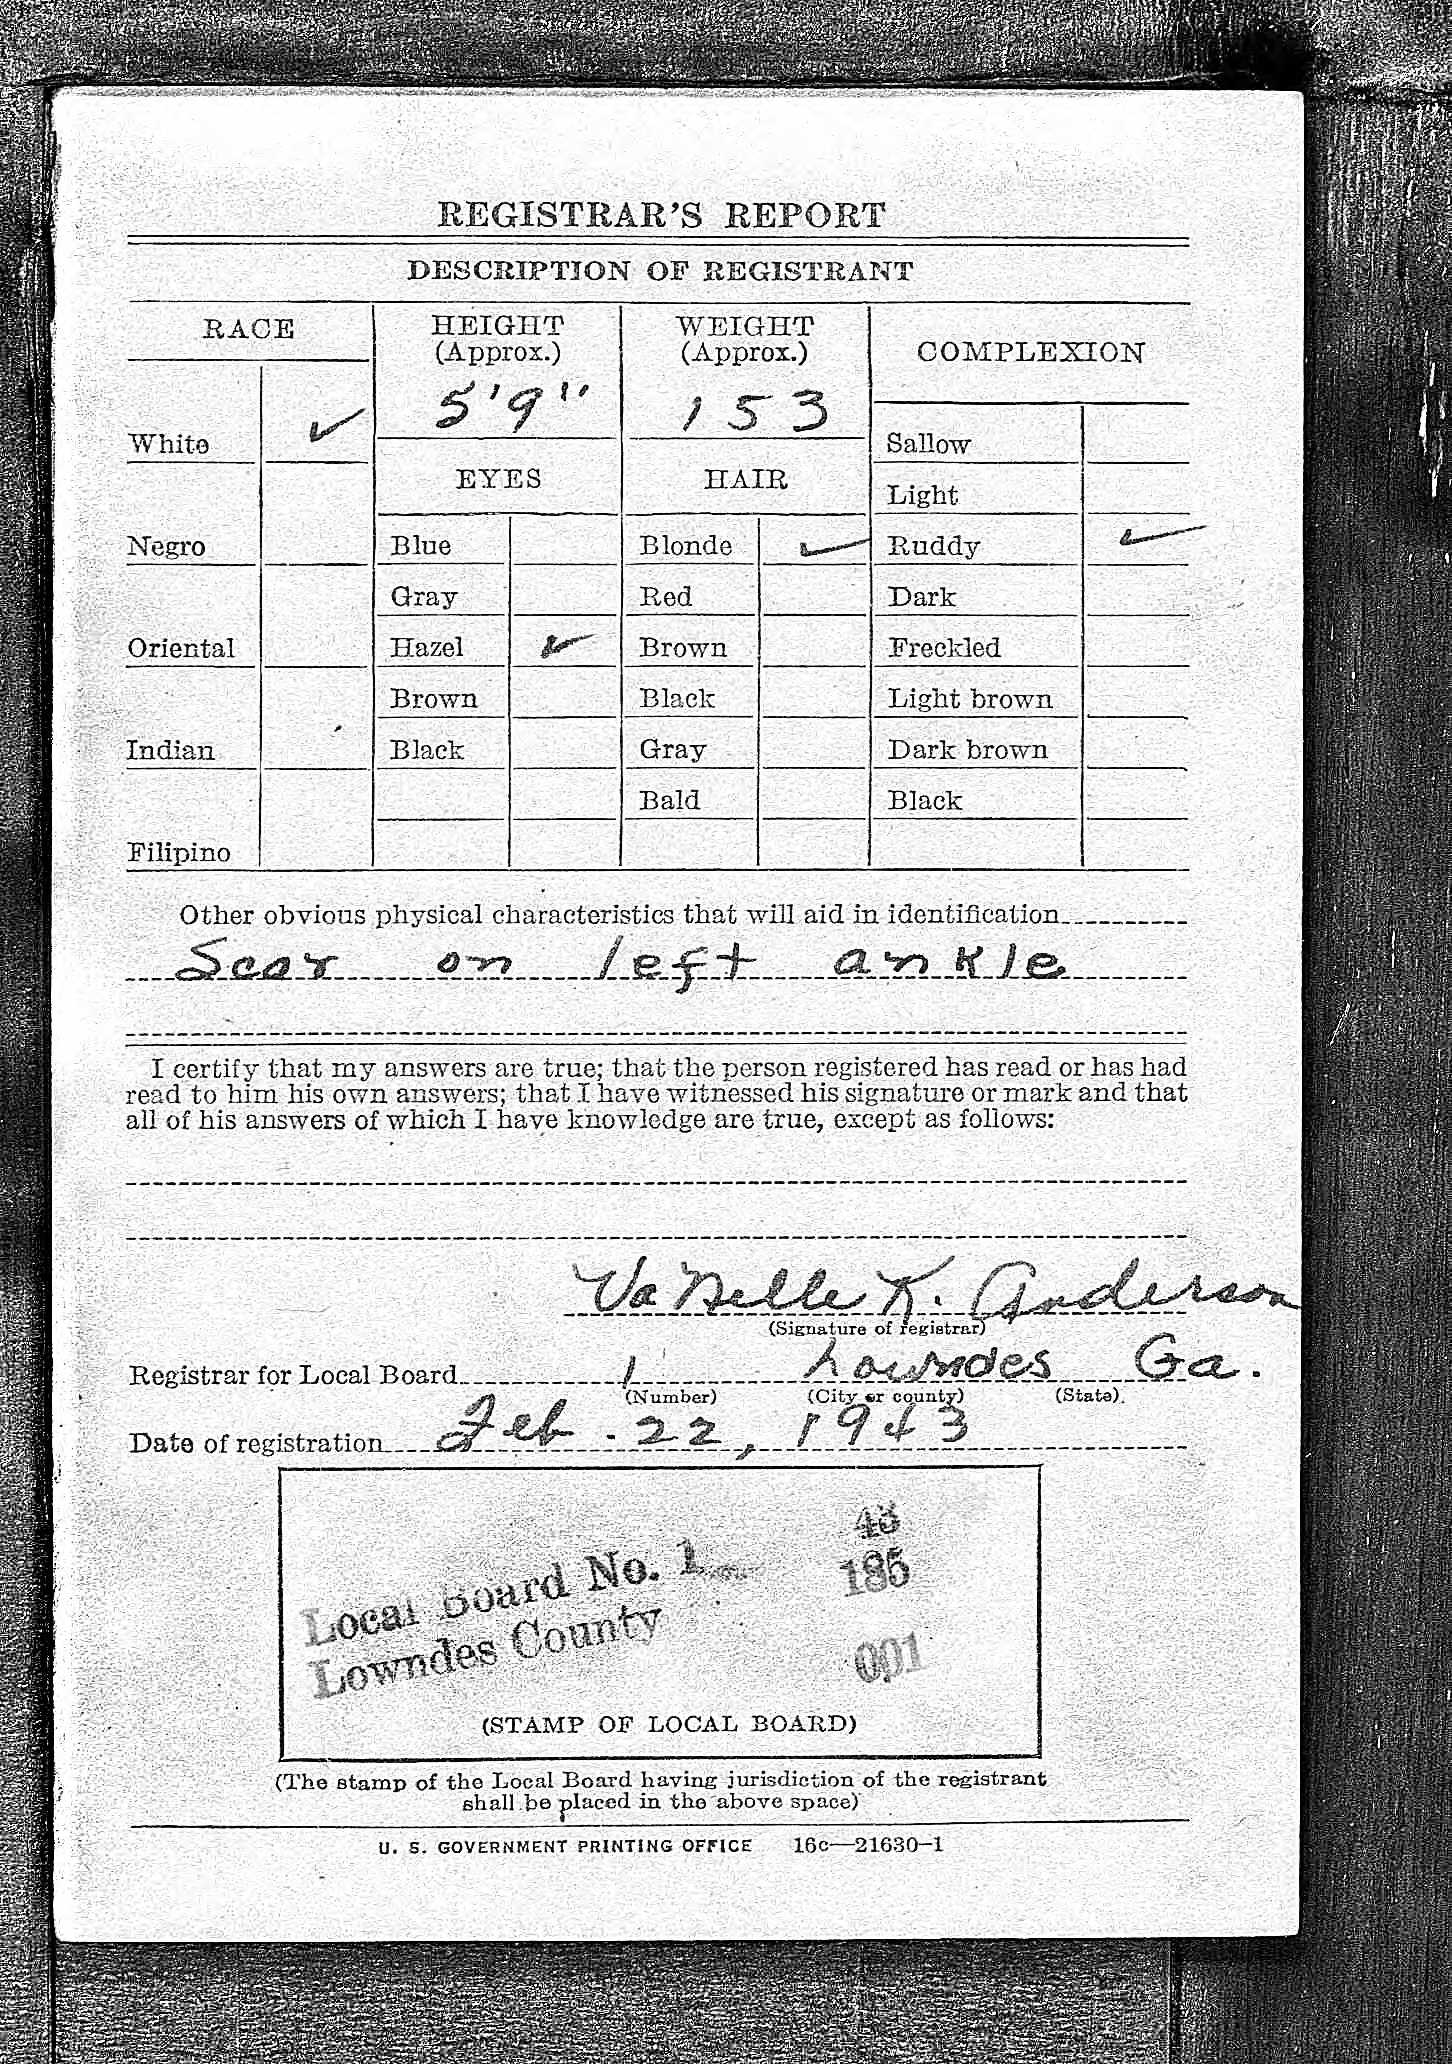 REGISTRAR'S REPORT
DESCRIPTION OF REGISTRANT
RACE
HEIGHT
(Approx.)
WEIGHT
(Approx.)
COMPLEXION
5'9"
153
White ✓
Sallow
EYES
HAIR
Light
Negro
Blue
Blonde ✓
Ruddy ✓
Gray
Red
Dark
Oriental
Hazel ✓
Brown
Freckled
Brown
Black
Light brown
Indian
Black
Gray
Dark brown
Bald
Black
Filipino
Other obvious physical characteristics that will aid in identification
Scar on left ankle
I certify that my answers are true; that the person registered has read or has had
read to him his own answers; that I have witnessed his signature or mark and that
all of his answers of which I have knowledge are true, except as follows:
VaNelle K. Anderson
(Signature of registrar)
Registrar for Local Board 1 Lowndes Ga.
(Number) (City or county) (State)
Date of registration Feb. 22, 1943
43
Local Board No. 1 185
Lowndes County 001
(STAMP OF LOCAL BOARD)
(The stamp of the Local Board having jurisdiction of the registrant
shall be placed in the above space)
U. S. GOVERNMENT PRINTING OFFICE 16c—21630-1